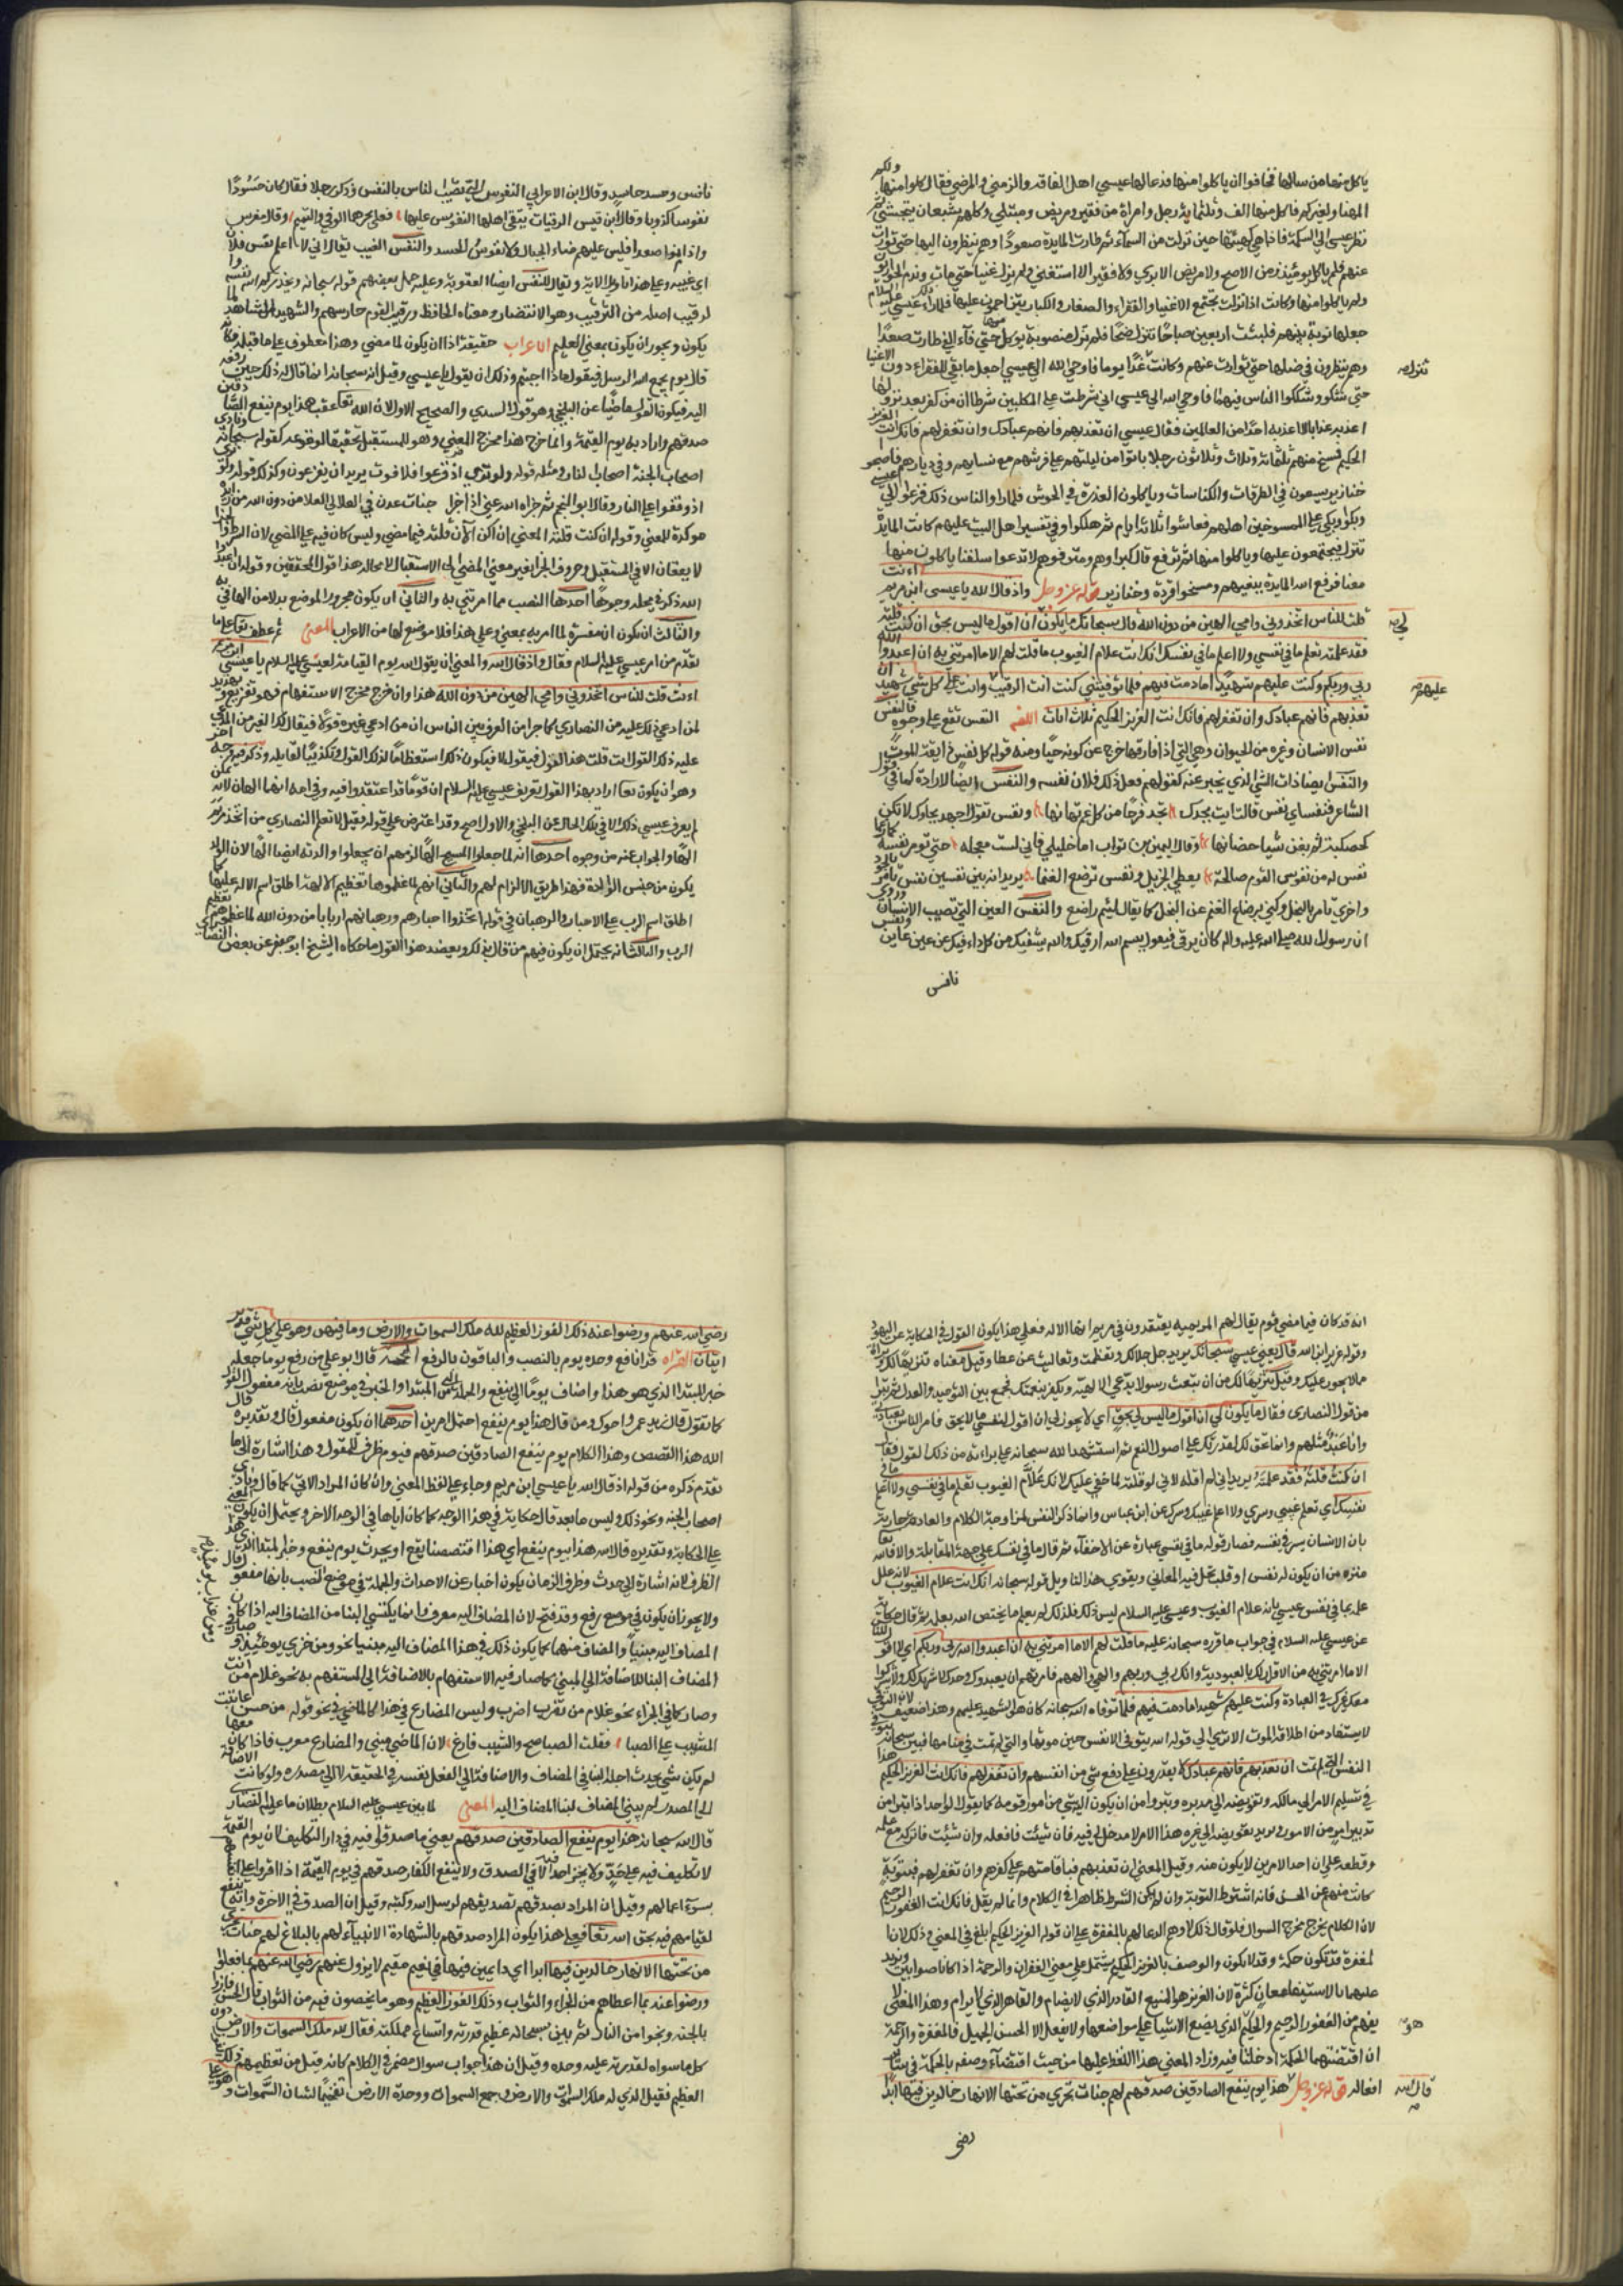 ياكل منها من سالها فخافوا ان ياكلوا منها فدعا لها عيسى اهل الفاقة والزمني والمرضي فقال كلوا منها ولكم
المهنا ولغيركم فاكل منها الف وثلثماية رجل وامراة من فقير ومريض ومبتلي وكلهم شبعان يتجشي ثم
نظر عيسى الي السمكة فاذا هي كهيئتها حين نزلت من السماء ثم طارت المايدة صعودا وهم ينظرون اليها حتي توارت
عنهم فلم ياكل يومئذ زمن الا صح ولا مريض الا بري ولا فقير الا استغني ولم يزل غنيا حتي مات وندم الحواريون
ومن لم ياكلوا منها وكانت اذا نزلت تجتمع الاغنيا والفقراء والصغار والكبار يتزاحمون عليها فلما راي ذلك عيسى عليه السلام
جعلها نوبة بينهم فلبثت اربعين صباحا تنزل ضحا فلم تزل منصوبة يوكل منها حتي فاء الفي طارت صعدا
وهم ينظرون في ضلها حتي توارت عنهم وكانت تنزل غبا يوما فاوحي الله الي عيسى اجعل مايدتي للفقراء دون الاغنيا
حتي شكوا وشككوا الناس فيها فاوحي الله الي عيسى اني شرطت علي المكذبين شرطا ان من كفر بعد نزولها
اعذبه عذابا لا اعذبه احدا من العالمين فقال عيسى ان تعذبهم فانهم عبادك وان تغفر لهم فانك انت العزيز
الحكيم فمسخ منهم ثلثمائة وثلاث وثلاثون رجلا باتوا من ليلتهم علي فرشهم مع نسايهم في ديارهم فاصبحوا
خنازير يسعون في الطرقات والكناسات وياكلون العذرة في الحوش فلما راوا الناس ذلك فزعوا الي عيسى
وبكوا وبكي علي الممسوخين اهلهم فعاشوا ثلاثة ايام ثم هلكوا وفي تفسير اهل البيت عليهم كانت المايدة
تنزل فيجتمعون عليها وياكلوا منها ثم ترفع فقال كبراوهم ومترفوهم لا ندعوا سفلتنا ياكلون منها
معنا فرفع الله المايدة ببغيهم ومسخوا قردة وخنازير قوله عز وجل واذ قال الله يا عيسى ابن مريم اءنت
قلت للناس اتخذوني وامي الهين من دون الله قال سبحانك ما يكون لي ان اقول ما ليس بحق ان كنت قلته
فقد علمته تعلم ما في نفسي ولا اعلم ما في نفسك انك انت علام الغيوب ما قلت لهم الا ما امرتني به ان اعبدوا الله
ربي وربكم وكنت عليهم شهيدا ما دمت فيهم فلما توفيتني كنت انت الرقيب عليهم وانت علي كل شي شهيد ان
تعذبهم فانهم عبادك وان تغفر لهم فانك انت العزيز الحكيم ثلاث ايات اللغة النفس تقع علي وجوه فالنفس
نفس الانسان وغيره من الحيوان وهي التي اذا فارقها خرج عن كونه حيا ومنه قوله كل نفس ذايقة الموت
والنفس ايضا ذات الشي الذي يخبر عنه كقولهم فعل ذلك فلان نفسه والنفس ايضا الارادة كما في قول
الشاعر فنفساي نفس قالت ايت بجدك تجد فرجا من كل غم تهابها ونفس تقول اجهد بجاءك لا تكن
كخاضبة لم يغن شيا خضابها وقال النمر بن تولب اما خليلي فاني لست معجله حتي يوامر نفسيه كما زعما
نفس له من نفوس القوم صالحة يعطي الجزيل ونفس ترضع الغنما يريد انه بين نفسين نفس تامره بالجود
واخري تامره بالبخل وكني برضاع الغنم عن البخل كما يقال لئيم راضع والنفس العين التي تصيب الانسان وروي
ان رسول الله صلي الله عليه واله كان يرقي فيقول بسم الله ارقيك والله يشفيك من كل داء فيك من عين عاين ونفس
نافس
نافس وحسد حاسد وقال ابن الاعرابي النفوس التي تصيب الناس بالنفس وذكر رجلا فقال كان حسودا
نفوسا كذوبا وقال ابن قيس الرقيات يتقي اهلها النفوس عليها فعلي نحرها الرقي والتميم وقال مضرس
واذا نموا صعدا فليس عليهم منا الخيال ولا نفوس الحسد والنفس الغيب يقال اني لا اعلم نفس فلان
اي غيبه وعلي هذا تاويل الاية ويقال النفس ايضا العقوبة وعليه حمل بعضهم قوله سبحانه ويحذركم الله نفسه وا
لرقيب اصله من الترقيب وهو الانتظار ومعناه الحافظ ورقيب القوم حارسهم والشهيد الشاهد لما
يكون ويجوز ان يكون بمعني العليم الاعراب حقيقة اذ ان يكون لما مضي وهذا معطوف علي ما قبله فكانه
قال يوم يجمع الله الرسل فيقول ماذا اجبتم وذلك ان يقول يا عيسى وقيل انه سبحانه انما قال له ذلك حين رفعه
اليه فيكون القول ماضيا عن البلخي وهو قول السدي والصحيح الاول لان الله تعالي عقب هذا يوم ينفع الصادقين
صدقهم واراد به يوم القيمة وانما خرج هذا مخرج المضي وهو للمستقبل تحقيقا لوقوعه كقوله سبحانه ونادي
اصحاب الجنة اصحاب النار ومثله قوله ولو تري اذ فزعوا فلا فوت يريد اذ يفزعون وكذلك قوله ولو تري
اذ وقفوا علي النار وقال ابو النجم ثم جزاه الله عني اذ جزا جنات عدن في العلالي العلا
لا يقعان الا في المستقبل وحروف الجزا تغير معني المضي الي الاستقبال لا محالة هذا قول المحققين وقوله ان اعبدوا
الله ذكر في محله وجوها احدها النصب مما امرتني به والثاني ان يكون مجرور الموضع بدلا من الها في به
والثالث ان يكون ان مفسرة لما امر به بمعني وعلي هذا فلا موضع لها من الاعراب المعني ثم عطف تعالي علي ما
تقدم من امر عيسى عليه السلام فقال واذ قال الله والمعني اذ يقول الله يوم القيامة لعيسى عليه السلام يا عيسى ابن مريم
اءنت قلت للناس اتخذوني وامي الهين من دون الله هذا وان خرج مخرج الاستفهام فهو تقريع وتهديد
لمن ادعي ذلك عليه من النصاري كما جرا من العرف بين الناس ان من ادعي غيره قولا فيقال لذلك الغير بين يدي المدعي
عليه ذلك القول انت قلت هذا القول فيقول لا فيكون ذلك استعظاما لذلك القول وتكذيبا لقايله وذكر فيه وجه اخر
وهو ان يكون تعالي اراد بهذا القول تعريف عيسى عليه السلام ان قوما قد اعتقدوا فيه وفي امه انهما الهان لانه يمكن
لم يعرف عيسى ذلك الا في تلك الحال عن البلخي والاول اصح وقد اعترض علي قوله فقيل لا نعلم النصاري من اتخذ مريم
الها والجواب عنه من وجوه احدها انه لما جعلوا المسيح الها لزمهم ان يجعلوا والدته ايضا الها لان الولد
يكون من جنس الوالدة فهذا طريق الالزام لهم والثاني انهم لما عظموها تعظيم الالهة اطلق اسم الاله عليها كما
اطلق اسم الرب علي الاحبار والرهبان في قوله اتخذوا احبارهم ورهبانهم اربابا من دون الله لما عظموهم تعظيم
الرب والثالث انه يحتمل ان يكون فيهم من قال بذلك ويعضد هذا القول ما حكاه الشيخ ابو جعفر عن بعض النصاري
انه قد كان فيما مضي قوم يقال لهم المريمية يعتقدون في مريم انها الاله فعلي هذا يكون القول في الحكاية عن اليهود
وقوله عزير ابن الله قال يعني عيسى سبحانك يريد جل جلالك وتعظمت وتعاليت عن عطا وقيل معناه تنزيها لك وبراة
مما لا يجوز عليك وقيل تنزيها لك من ان تبعث رسولا يدعي الالهية ويكفر بنعمتك فجمع بين التوحيد والعدل ثم تبرا
من قول النصاري فقال ما يكون لي ان اقول ما ليس لي بحق اي لا يجوز لي ان اقول لنفسي ما لا يحق فامر الناس بعبادتي
وانا عبد مثلهم وانما تحق لك لقدرتك علي اصول النعم ثم استشهد الله سبحانه علي براءته من ذلك القول فقال
ان كنت قلته فقد علمته يريد اني لم اقله لاني لو قلته لما خفي عليك لانك علام الغيوب تعلم ما في نفسي ولا اعلم ما في
نفسك اي تعلم غيبي وسري ولا اعلم غيبك وسرك عن ابن عباس وانما ذكر النفس لمزاوجة الكلام والعادة جارية
بان الانسان يسر في نفسه فصار قوله ما في نفسي عبارة عن الاخفاء ثم قال ما في نفسك علي جهة المقابلة والا فالله تعالي
منزه من ان يكون له نفس او قلب تحل فيه المعاني ويقوي هذا التاويل قوله سبحانه انك انت علام الغيوب لانه علل
علمه بما في نفس عيسى بانه علام الغيوب وعيسى عليه السلام ليس كذلك فلذلك لم يعلم ما يختص الله بعلمه ثم قال حكاية
عن عيسى عليه السلام في جواب ما قرره سبحانه عليه ما قلت لهم الا ما امرتني به ان اعبدوا الله ربي وربكم اي لم اقل للناس
الا ما امرتني به من الاقرار لك بالعبودية وانك ربي وربهم والهي والههم فامرتهم ان يعبدوك وحدك لا شريك لك ولا يشركوا
معك غيرك في العبادة وكنت عليهم شهيدا ما دمت فيهم فلما توفاه الله سبحانه كان هو الشهيد عليهم وهذا ضعيف لان التوفي
لا يستفاد من اطلاقه الموت الا تري الي قوله الله يتوفي الانفس حين موتها والتي لم تمت في منامها فبين سبحانه انه يتوفي
النفس التي لم تمت ان تعذبهم فانهم عبادك لا يقدرون علي دفع شي من انفسهم وان تغفر لهم فانك انت العزيز الحكيم هذا
في تسليم الامر الي مالكه وتفويضه الي مدبره وتبرؤ من ان يكون اليه شي من امور قومه كما يقول الواحد اذا تبرا من
تدبير امر من الامور ويريد تفويضه الي غيره هذا الامر لا مدخل لي فيه فان شيئت فافعله وان شئت فاتركه مع علمه
وقطعه علي ان احد الامرين لا يكون منه وقيل المعني ان تعذبهم فباقامتهم علي كفرهم وان تغفر لهم فبتوبة
كانت منهم عن الحسن فانه اشترط التوبة وان لم يكن الشرط ظاهرا في الكلام وانما لم يقل فانك انت الغفور الرحيم
لان الكلام لم يخرج مخرج السوال فلو قال ذلك لاوهم الدعا لهم بالمغفرة علي ان قوله العزيز الحكيم ابلغ في المعني وذلك لان ا
لمغفرة قد تكون حكمة وقد لا تكون والوصف بالعزيز الحكيم يشتمل علي معني الغفران والرحمة اذا كانا صوابين ويزيد
عليهما بالاستيفا معان كثيرة لان العزيز هو المنيع القادر الذي لا يضام والقاهر الذي لا يرام وهذا المعني لا
يفهم من الغفور الرحيم والحكيم الذي يضع الاشيا علي مواضعها ولا يفعل الا الحسن الجميل فالمغفرة والرحمة
ان اقتضتهما الحكمة دخلتا فيه وزاد المعني هذا اللفظ عليهما من حيث اقتضاء وصفه بالحكمة في ساير
افعاله قوله عز وجل هذا يوم ينفع الصادقين صدقهم لهم جنات تجري من تحتها الانهار خالدين فيها ابدا
قال الله
رضي
رضي الله عنهم ورضوا عنه ذلك الفوز العظيم لله ملك السموات والارض وما فيهن وهو علي كل شي قدير
ايتان القراة قرا نافع وحده يوم بالنصب والباقون بالرفع الحجة قال ابو علي من رفع يوما جعله
خبر المبتدا الذي هو هذا واضاف يوما الي ينفع والجملة التي من المبتدا والخبر في موضع نصب بانه مفعول القول
كما تقول قال زيد عمرو اخوك ومن قال هذا يوم ينفع احتمل امرين احدهما ان يكون مفعول قال وتقديره قال
الله هذا القصص وهذا الكلام يوم ينفع الصادقين صدقهم فيوم ظرف للقول وهذا اشارة الي ما
تقدم ذكره من قوله اذ قال الله يا عيسى ابن مريم وجاء علي لفظ المضي وان كان المراد الاتي كما قال ونادي
اصحاب الجنة ونحو ذلك وليس ما بعد قال حكاية في هذا الوجه كما كان اياها في الوجه الاخر ويحتمل ان يكون المعني
علي الحكاية وتقديره قال الله هذا يوم ينفع اي هذا اقتصصنا يقع او يحدث يوم ينفع وخبر المبتدا الذي هو هذا
الظرف لانه اشارة الي حدث وظرف الزمان يكون اخبار عن الاحداث والجملة في موضع النصب بانها مفعول قال
ولا يجوز ان يكون في موضع رفع وقد فتح لان المضاف اليه معرب وانما يكتسي البنا من المضاف اليه اذا كان
المضاف اليه مبنيا والمضاف منهما كما يكون ذلك في هذا المضاف اليه مبنيا نحو ومن خزي يومئذ وصار في
المضاف البنا للاضافة الي المبني كما صار فيه الاستفهام بالاضافة الي المستفهم به نحو غلام من انت
وصار كما في الجزاء نحو غلام من تضرب اضرب وليس المضارع في هذا كالماضي في نحو قوله من حين عاتبت
المشيب علي الصبا فقلت الصبا صح والشيب فارع لان الماضي مبني والمضارع معرب فاذا كان معربا
لم يكن شي يحدث اجله البنا في المضاف والاضافة الي الفعل نفسه في الحقيقة لا الي مصدره ولو كانت الاضافة
الي المصدر لم يبني المضاف لبنا المضاف اليه المعني لما بين عيسى عليه السلام بطلان ما عليه النصاري
قال الله سبحانه هذا يوم ينفع الصادقين صدقهم يعني ما صدقوا فيه في دار التكليف لان يوم القيمة
لا تكليف فيه علي احد ولا يخبر احد فيه الا في الصدق ولا ينفع الكفار صدقهم في يوم القيمة اذا اقروا علي انفسهم
بسوء اعمالهم وقيل ان المراد بصدقهم تصديقهم لرسل الله وكتبه وقيل ان الصدق في الاخرة وانه ينفع
لقيامهم فيه بحق الله تعالي فعلي هذا يكون المراد صدقهم بالشهادة لانبيائهم بالبلاغ لهم جنات تجري
من تحتها الانهار خالدين فيها ابدا اي دايمين فيها في نعيم مقيم لا يزول عنهم رضي الله عنهم بما فعلوا
ورضوا عنه بما اعطاهم من الجزاء والثواب وذلك الفوز العظيم وهو ما يخصون فيه من الثواب قال الحسن فازوا
بالجنة ونجوا من النار ثم بين سبحانه عظيم قدرته واتساع مملكته فقال لله ملك السموات والارض دون
كل ما سواه لقدرته عليه وحده وقيل ان هذا جواب سوال مضمر في الكلام كانه قيل من يعطيهم ذلك الفوز
العظيم فقيل الذي له ملك السموات والارض وجمع السموات ووحد الارض تفخيما لشان السموات و